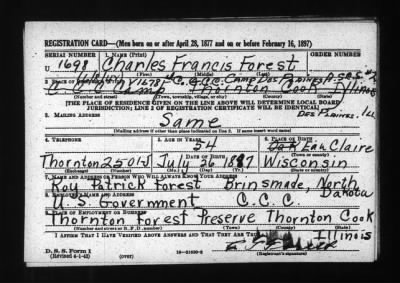 REGISTRATION CARD—(Men born on or after April 28, 1877 and on or before February 16, 1897)
SERIAL NUMBER 1. NAME (Print) ORDER NUMBER
U 1698 Charles Francis Forest
(First) (Middle) (Last)
2. PLACE OF RESIDENCE (Print)
C.C.C. Camp Thornton Cook Illinois
(Number and street) (Town, township, village, or city) (County) (State)
[THE PLACE OF RESIDENCE GIVEN ON THE LINE ABOVE WILL DETERMINE LOCAL BOARD
JURISDICTION; LINE 2 OF REGISTRATION CERTIFICATE WILL BE IDENTICAL]
3. MAILING ADDRESS DES PLAINES, ILL
Same
[Mailing address if other than place indicated on line 2. If same insert word same]
4. TELEPHONE 5. AGE IN YEARS 6. PLACE OF BIRTH
54 Eau Claire
DATE OF BIRTH (Town or county)
Thornton 2501J July 26 1887 Wisconsin
7. NAME AND ADDRESS OF PERSON WHO WILL ALWAYS KNOW YOUR ADDRESS
Roy Patrick Forest Brinsmade, North Dakota
8. EMPLOYER'S NAME AND ADDRESS
U.S. Government C.C.C.
9. PLACE OF EMPLOYMENT OR BUSINESS
Thornton forest Preserve Thornton Cook
(Number and street or R. F. D. number) (Town) (County) (State)
I AFFIRM THAT I HAVE VERIFIED ABOVE ANSWERS AND THAT THEY ARE TRUE. Illinois
D. S. S. Form 1
(Revised 4-1-42) (over) (Registrant's signature)